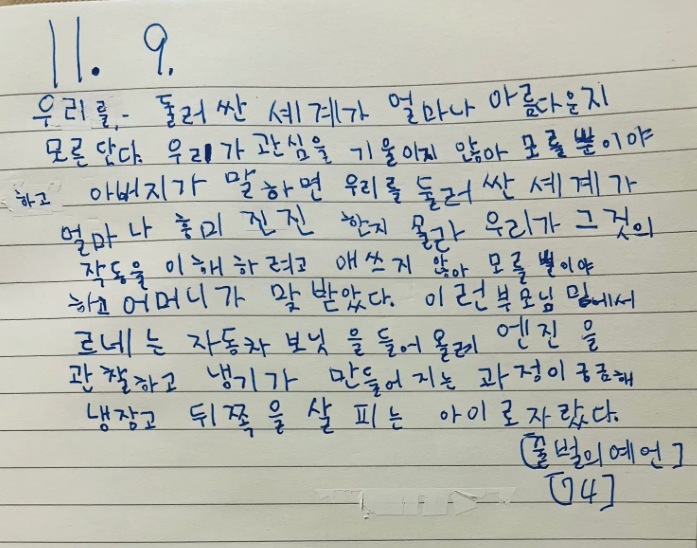 11. 9.
우리를.- 둘러싼 세계가 얼마나 아름다운지
모른단다. 우리가 관심을 기울이지 않아 모를뿐이야
하고 아버지가 말하면 우리를 둘러싼 세계가
얼마나 흥미진진한지 몰라 우리가 그것의
작동을 이해하려고 애쓰지 않아 모를뿐이야
하고 어머니가 맞받았다. 이런부모님 밑에서
르네는 자동차 보닛을 들어올려 엔진을
관찰하고 냉기가 만들어지는 과정이 궁금해
냉장고 뒤쪽을 살피는 아이로자랐다.
[꿀벌의예언]
[74]